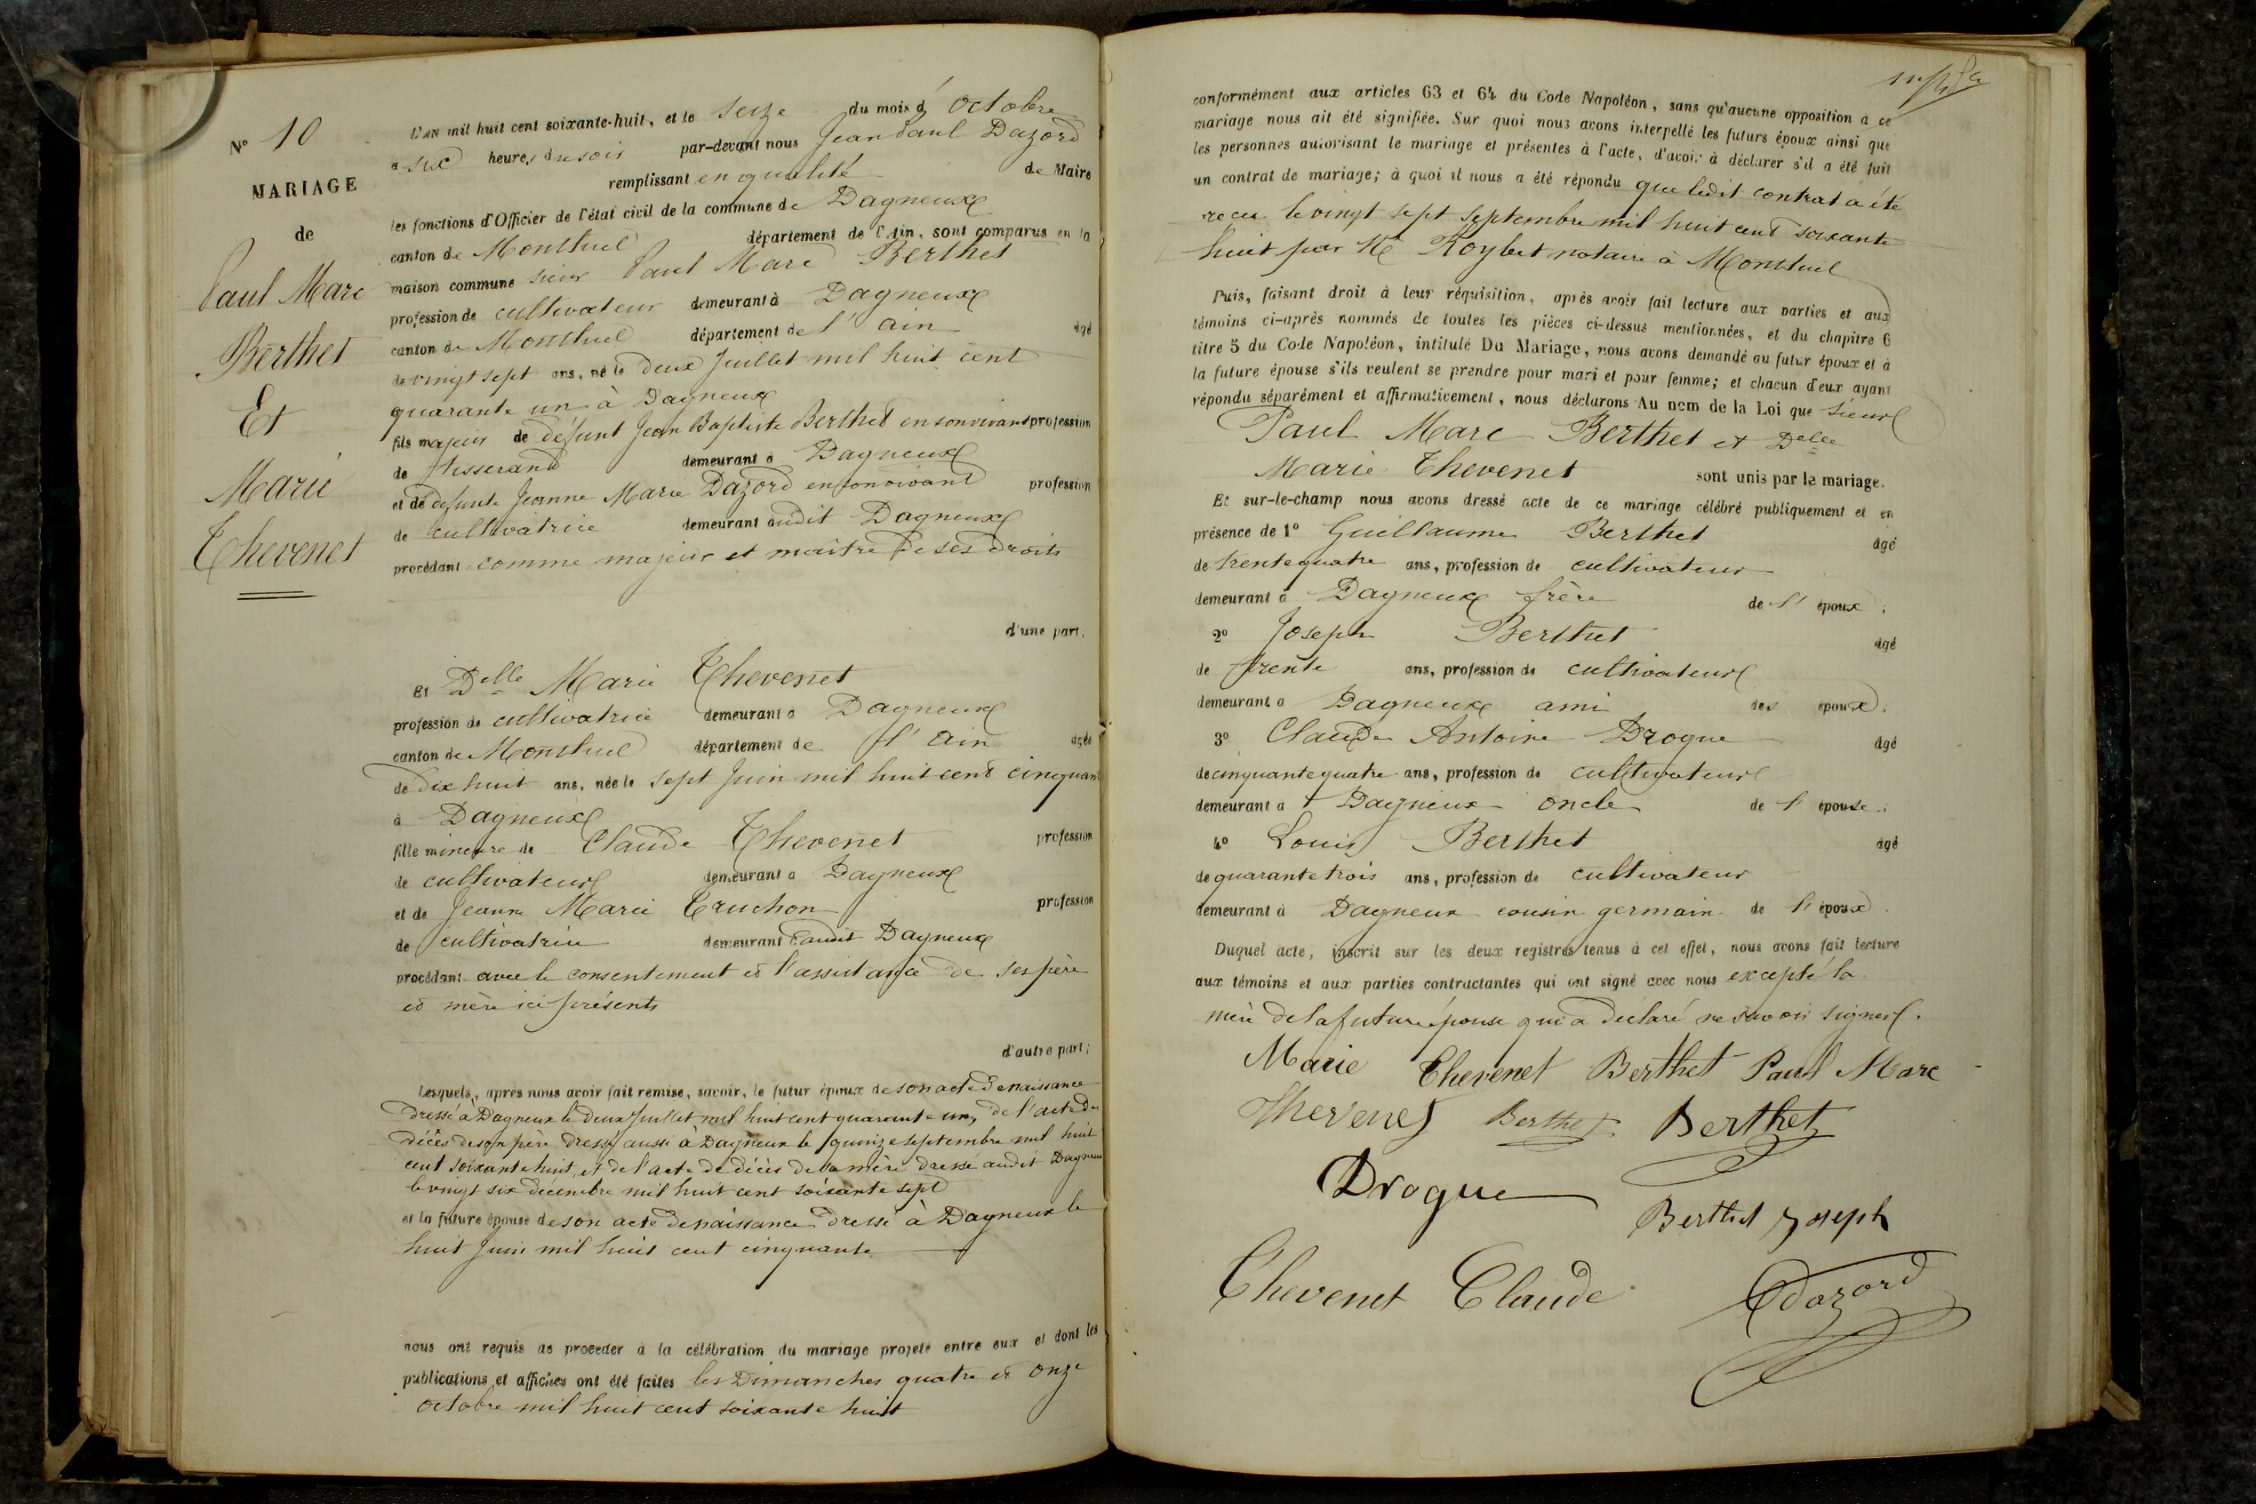 N° 10
MARIAGE
de
Paul Marc
Berthet
Et
Marie
Thevenet
L'AN mil huit cent soixante-huit, et le seize du mois d' octobre
a six heures du soir par-devant nous Jean Paul Dazord
remplissant en qualité de Maire
les fonctions d'Officier de l'état civil de la commune de Dagneux
canton de Montluel département de l'Ain, sont comparus en la
maison commune sieur Paul Marc Berthet
profession de cultivateur demeurant à Dagneux
canton de Montluel département de l' ain agé
de vingt sept ans, né le deux Juillet mil huit cent
quarante un à Dagneux
fils majeur de défunt Jean Baptiste Berthet en son vivant profession
de tisserand demeurant a Dagneux
et de defunte Jeanne Marie Dazord en son vivant profession
de cultivatrice demeurant audit Dagneux
procédant comme majeur et maître de ses droits
d'une part,
Et Delle Marie Thevenet
profession de cultivatrice demeurant a Dagneux
canton de Montluel département de l' ain agée
de dix huit ans, née le sept Juin mil huit cent cinquante
à Dagneux
fille mineure de Claude Thevenet profession
de cultivateur demeurant a Dagneux
et de Jeanne Marie Truchon profession
de cultivatrice demeurant audit Dagneux
procédant avec le consentement et l'assistance de ses père
et mère ici présents
d'autre part;
Lesquels, après nous avoir fait remise, savoir, le futur époux de son acte de naissance
dressé à Dagneux le deux Juillet mil huit cent quarante un, de l'acte de
décès de son père dressé aussi à Dagneux le quinze septembre mil huit
cent soixante huit, et de l'acte de décès de sa mère dressé audit Dagneux
le vingt six décembre mil huit cent soixante sept
et la future épouse de son acte de naissance dressé à Dagneux le
huit Juin mil huit cent cinquante
nous ont requis de proceder à la célébration du mariage projeté entre eux et dont les
publications et affiches ont été faites les Dimanches quatre et onze
octobre mil huit cent soixante huit
conformément aux articles 63 et 64 du Code Napoléon, sans qu'aucune opposition a ce
mariage nous ait été signifiée. Sur quoi nous avons interpellé les futurs époux ainsi que
les personnes autorisant le mariage et présentes à l'acte, d'avoir à déclarer s'il a été fait
un contrat de mariage; à quoi il nous a été répondu que ledit contrat a été
recu le vingt sept septembre mil huit cent soixante
huit par Me Roybet notaire à Montluel
Puis, faisant droit à leur réquisition, après avoir fait lecture aux parties et aux
témoins ci-après nommés de toutes les pièces ci-dessus mentionnées, et du chapitre 6
titre 5 du Code Napoléon, intitulé Du Mariage, nous avons demandé au futur époux et à
la future épouse s'ils veulent se prendre pour mari et pour femme; et chacun d'eux ayant
répondu séparément et affirmativement, nous déclarons Au nom de la Loi que Sieur
Paul Marc Berthet et Delle
Marie Thevenet sont unis par le mariage.
Et sur-le-champ nous avons dressé acte de ce mariage célébré publiquement et en
présence de 1° Guillaume Berthet âgé
de trente quatre ans, profession de cultivateur
demeurant à Dagneux frère de l' époux;
2° Joseph Berthet âgé
de trente ans, profession de cultivateur
demeurant a Dagneux ami des époux;
3° Claude Antoine Drogue âgé
de cinquante quatre ans, profession de cultivateur
demeurant a Dagneux oncle de l' épouse;
4° Louis Berthet âgé
de quarante trois ans, profession de cultivateur
demeurant à Dagneux cousin germain de l' époux
Duquel acte, inscrit sur les deux registres tenus à cet effet, nous avons fait lecture
aux témoins et aux parties contractantes qui ont signé avec nous excepté la
mère de la future épouse qui a déclaré ne savoir signer.
Marie Thevenet Berthet Paul Marc
Thevenet Berthet Berthet
Drogue
Berthet Joseph
Thevenet Claude Dazord